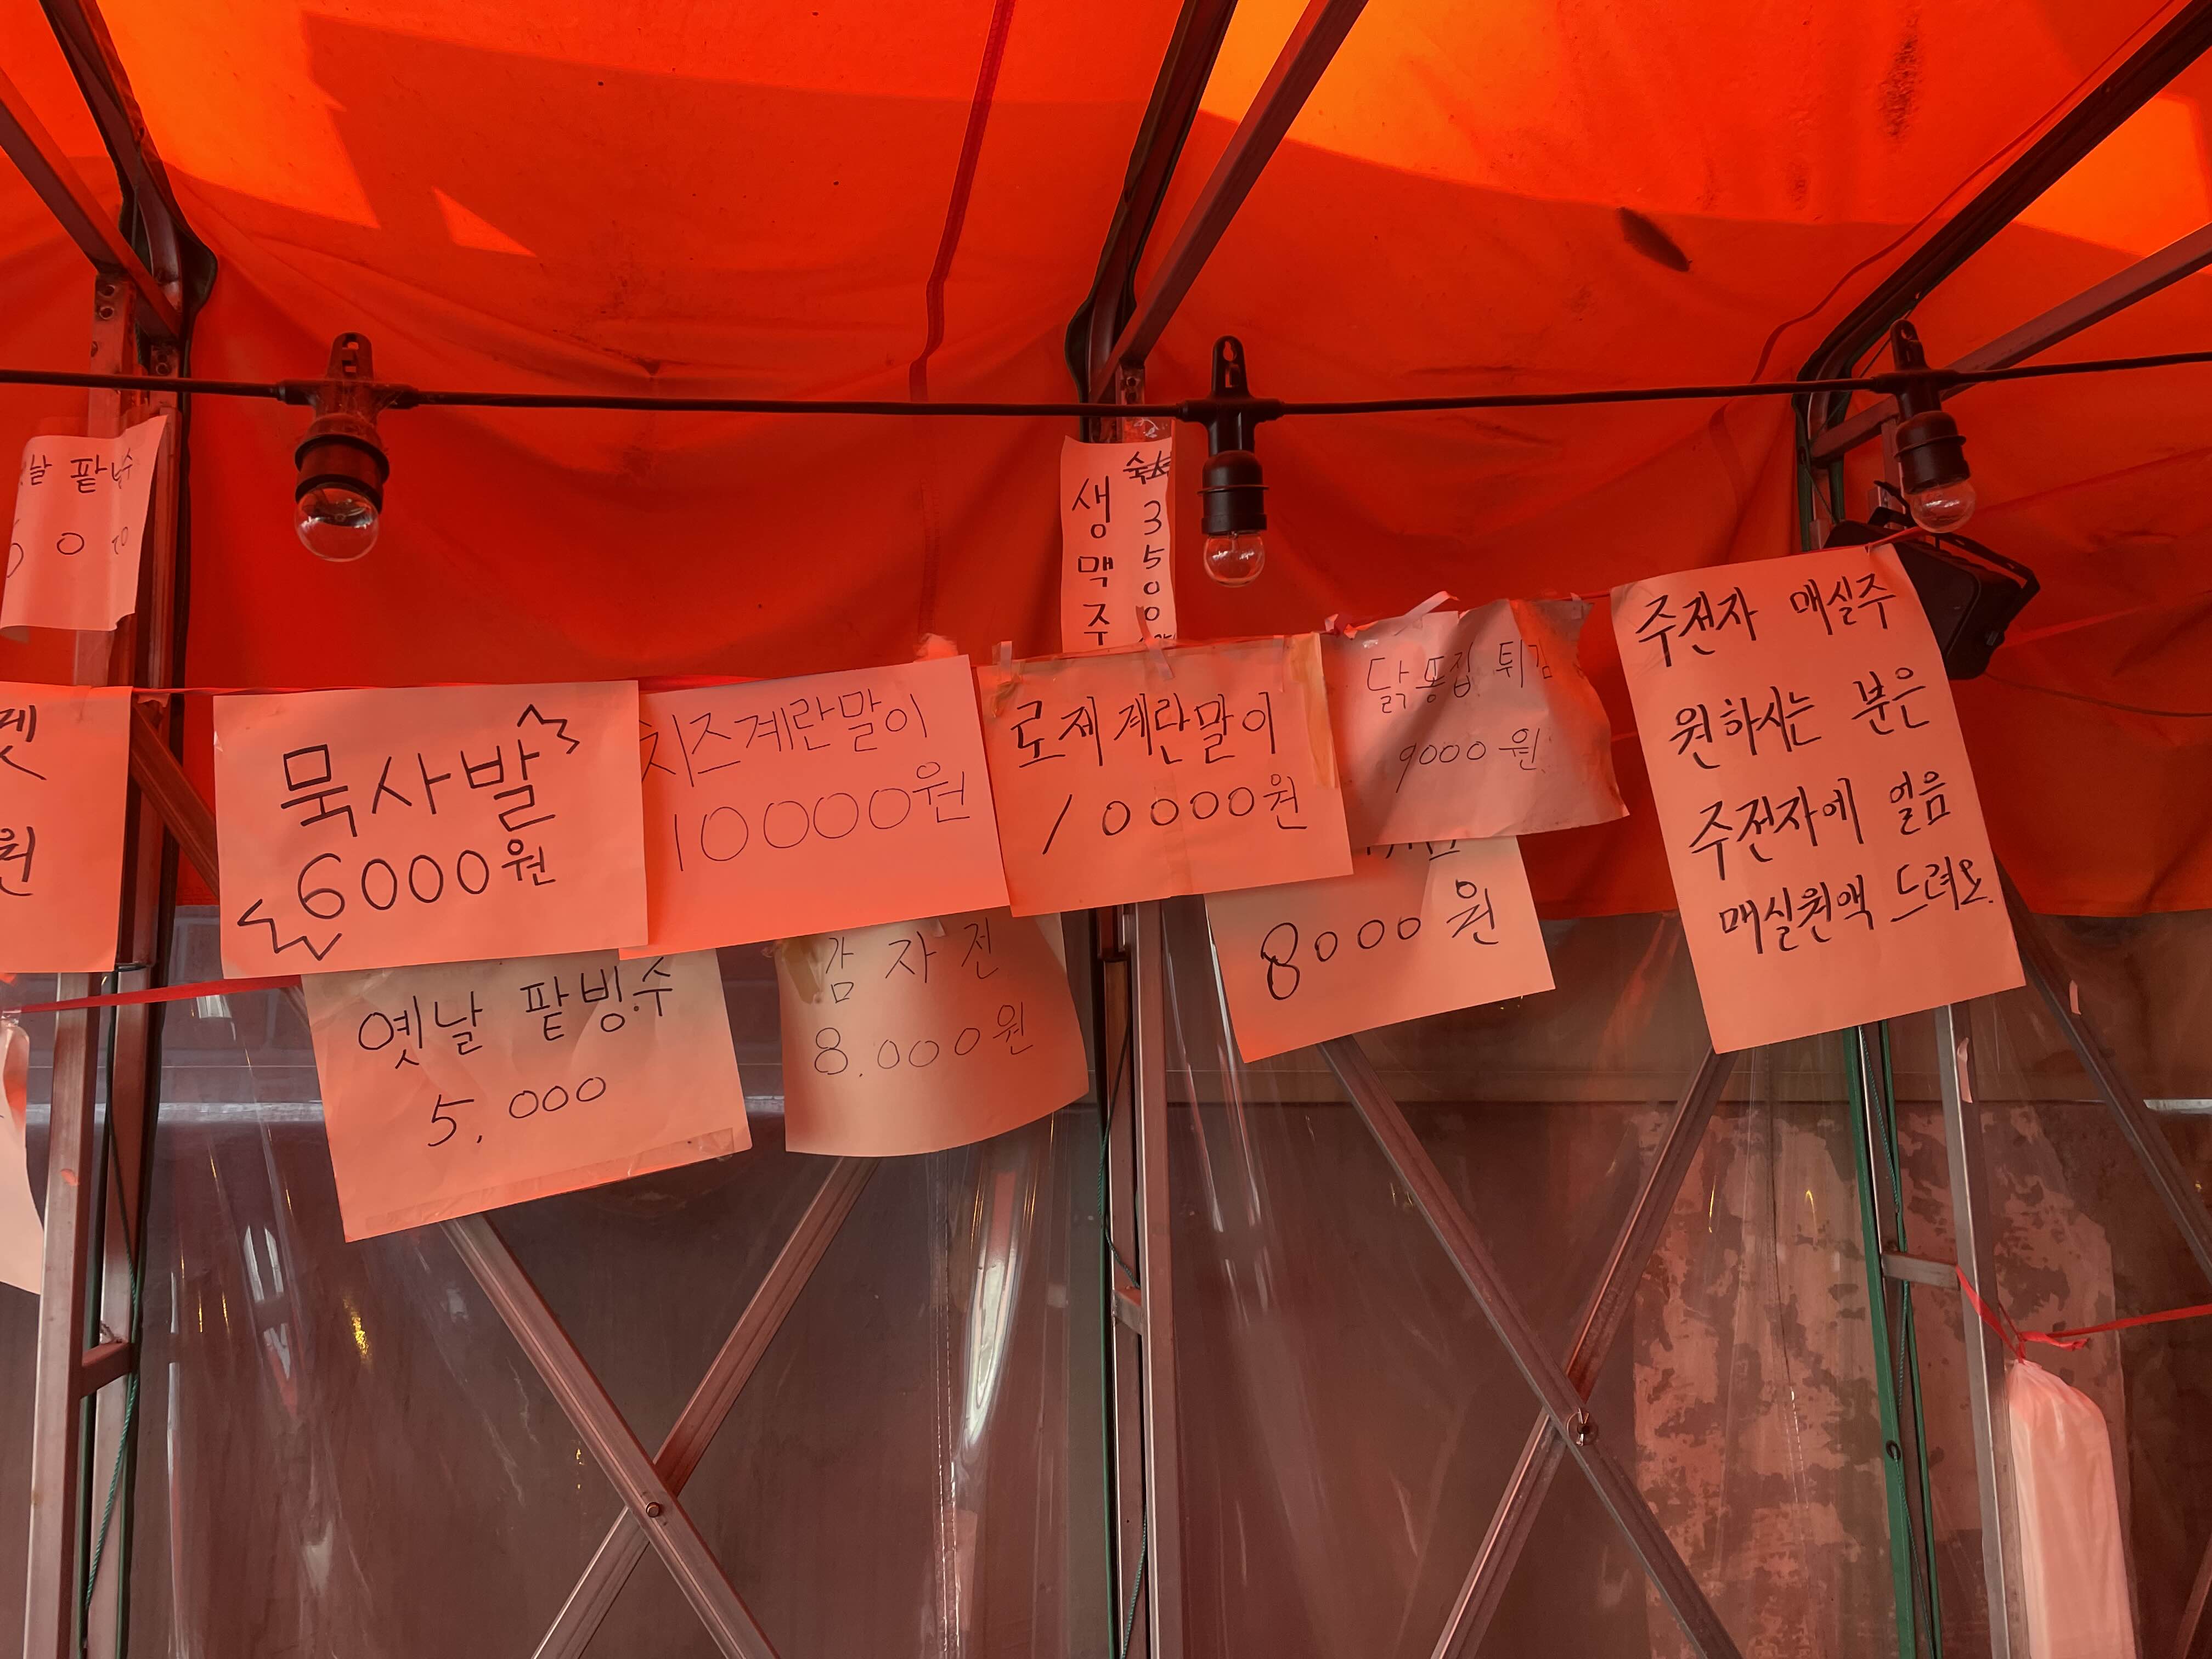 팥
생맥주
3500
묵사발
6000원
치즈계란말이
10000원
로제계란말이
10000원
닭똥집 튀김
9000원
8000원
옛날 팥빙수
5,000
감자전
8.000원
주전자 매실주
원하시는 분은
주전자에 얼음
매실원액 드려요.